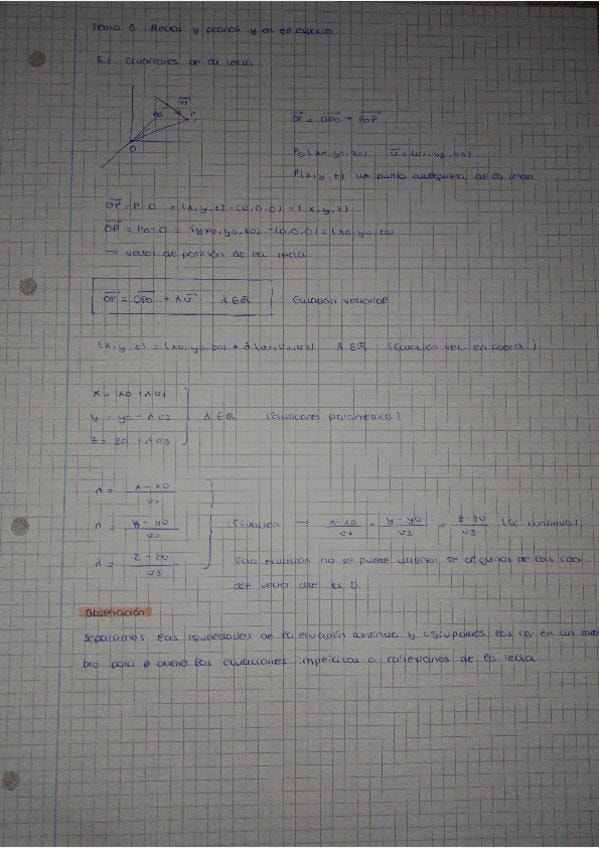 Tema 5. Rectas y planos y en el espacio.
5.1 Ecuaciones de la recta
P0
P
O
OP = OP0 + P0P
P0(x0, y0, z0) v = (v1, v2, v3)
P(x, y, z) un punto cualquiera de la recta
OP = P-O = (x, y, z) - (0,0,0) = (x, y, z)
OP = P0-O = (x0, y0, z0) - (0,0,0) = (x0, y0, z0)
→ vector de posición de la recta.
OP = OP0 + λv λ∈ℝ Ecuación vectorial
(x, y, z) = (x0, y0, z0) + λ(v1, v2, v3) λ∈ℝ (Ecuación vec. en coord.)
x = x0 + λv1
y = y0 + λv2 λ∈ℝ (Ecuaciones paramétrica)
z = z0 + λv3
λ = x-x0 / v1
λ = y-y0 / v2 (Ecuación → x-x0 / v1 = y-y0 / v2 = z-z0 / v3 (Ec. continua)
λ = z-z0 / v3 Esta ecuación no se puede si algunas de las coor
del vector dir. es 0.
Observación
Separamos las igualdades de la ecuación continua y agrupamos los en un
bro para obtener las ecuaciones implícitas o cartesianas de la recta